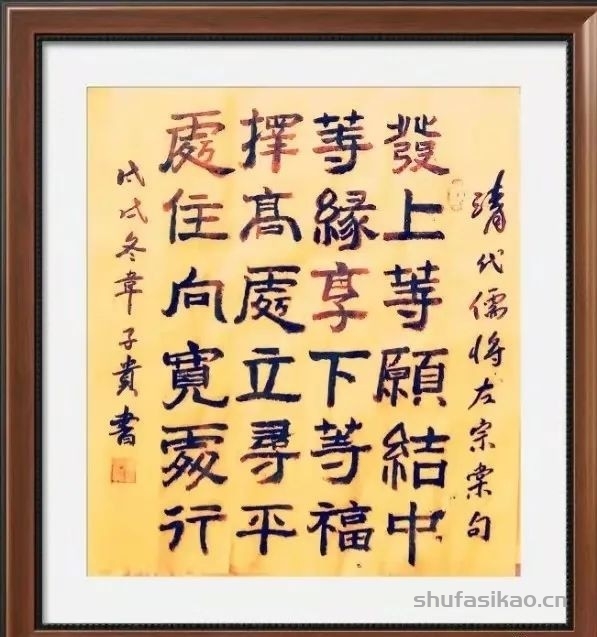 清代儒将左宗棠句
發上等願結中
等緣享下等福
擇髙處立尋平
處住向寬處行
戊戌冬韋子貴書
shufasikao.cn